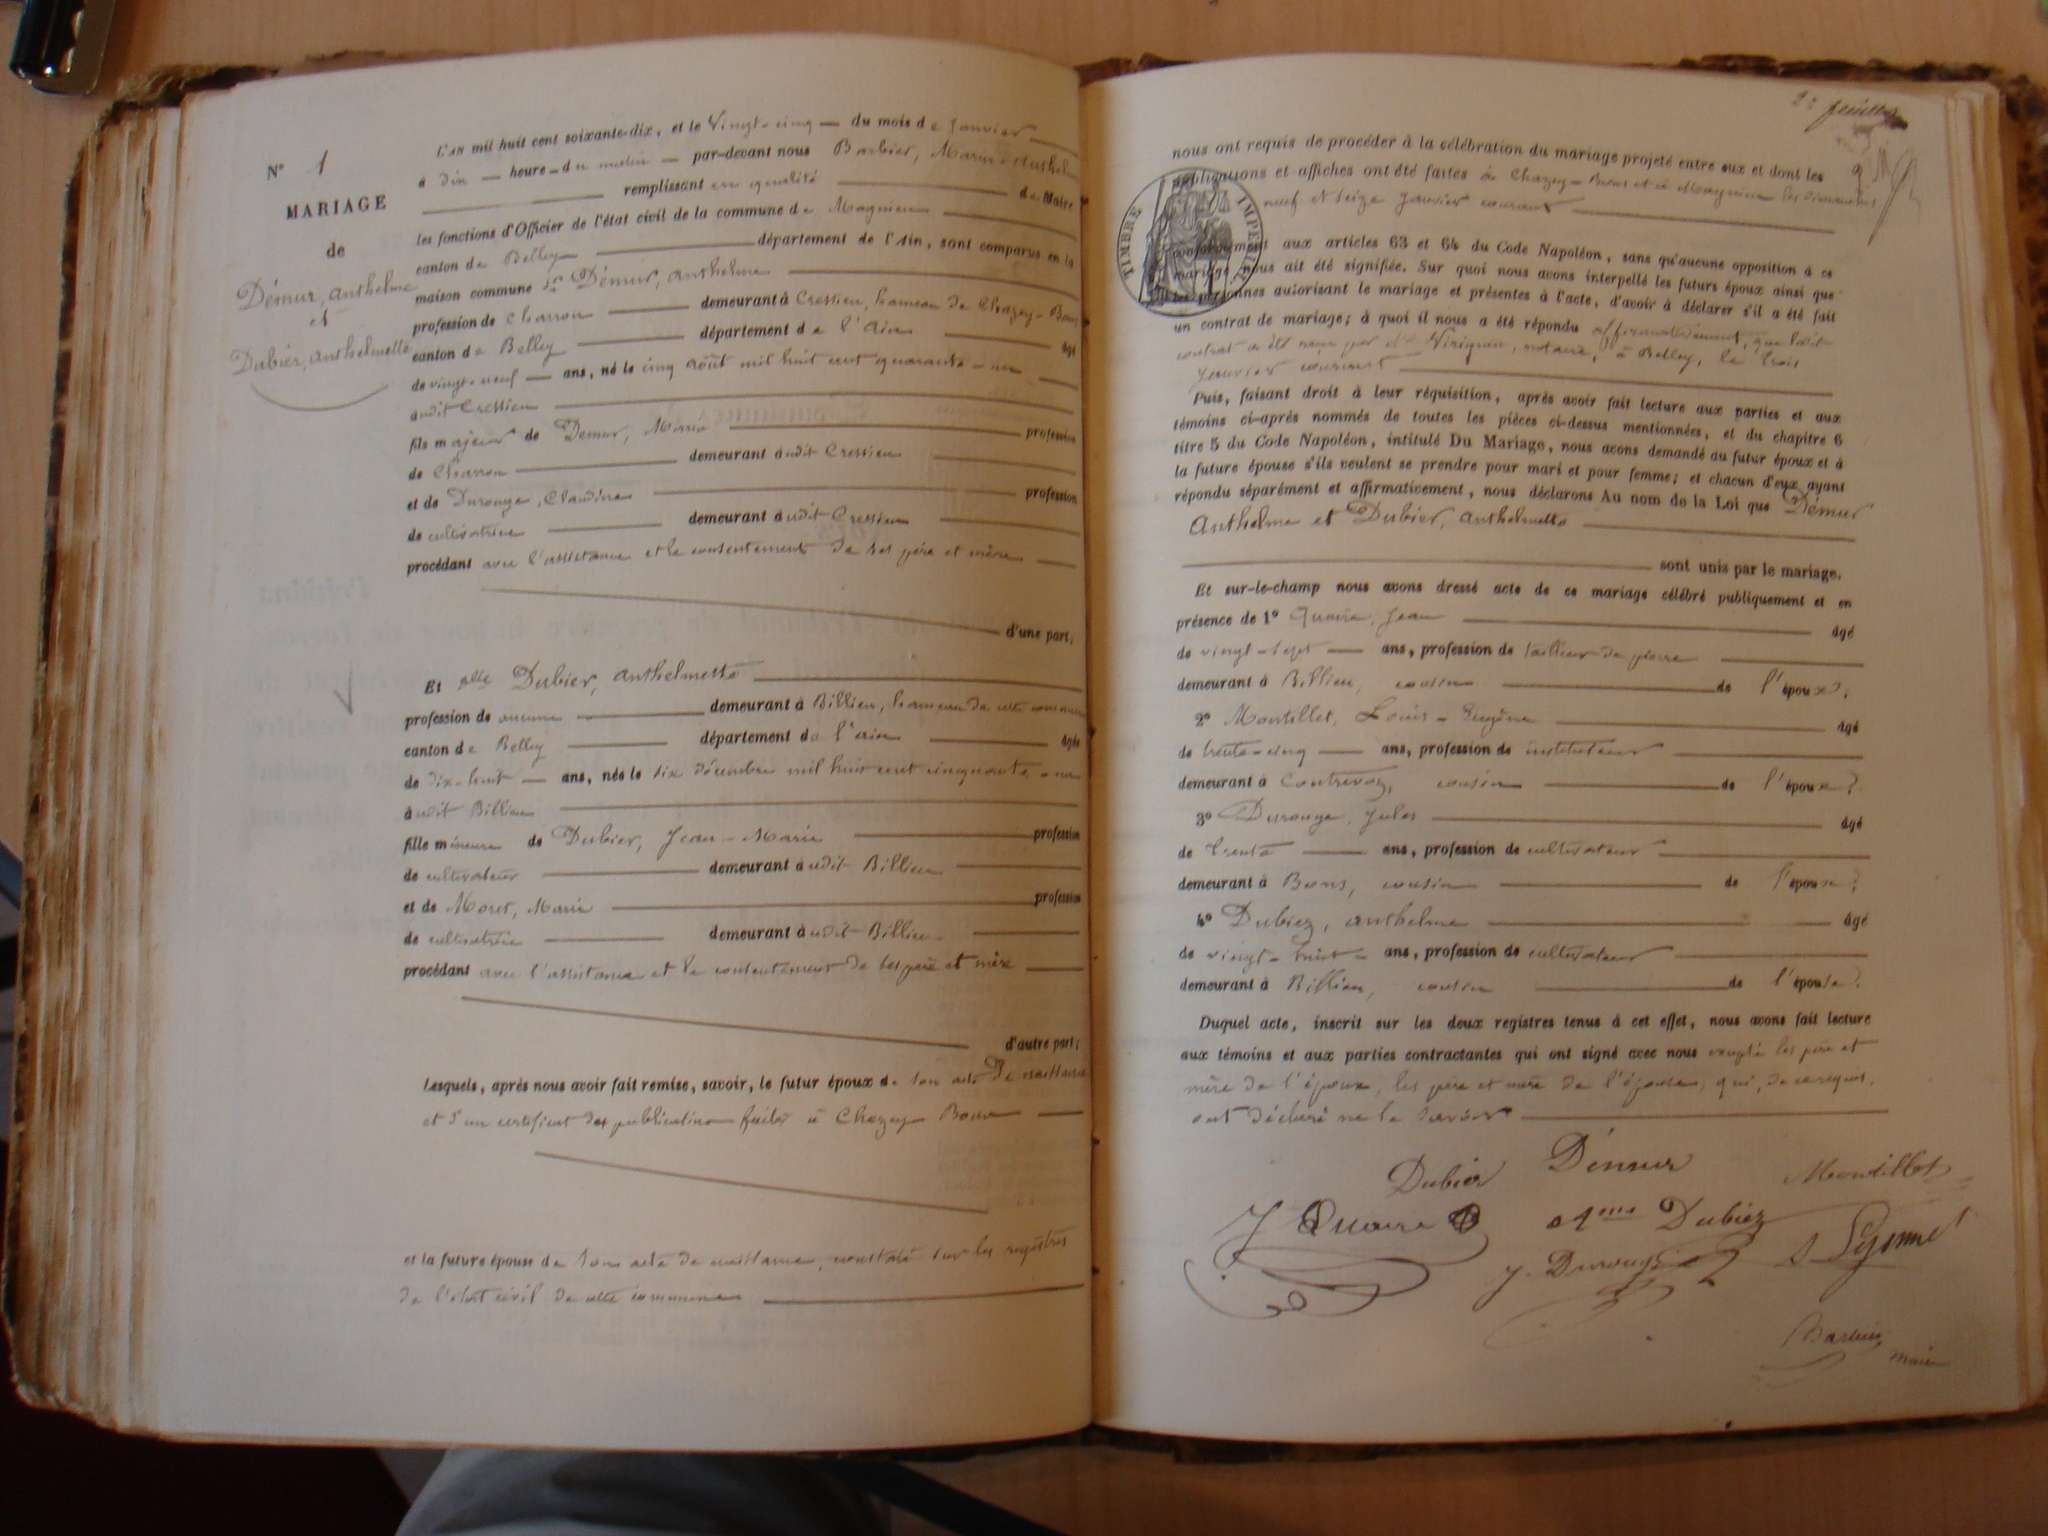 N° 1
MARIAGE
de
Démur, anthelme
et
Dubier, anthelmette
L'an mil huit cent soixante-dix, et le Vingt-cinq du mois de Janvier
à dix heure du matin par-devant nous Barbier, Marin-Anthelme
remplissant en qualité de Maire
les fonctions d'Officier de l'état civil de la commune de Magnieu
canton de Belley département de l'Ain, sont comparus en la
maison commune Sr Démur, anthelme
profession de charron demeurant à Cressieu, hameau de Chazey-Bons
canton de Belley département de l'Ain âgé
de vingt-neuf ans, né le cinq août mil huit cent quarante-un
audit Cressieu
fils majeur de Demur, Marin profession
de Charron demeurant audit Cressieu
et de Durouge, Claudine profession
de cultivatrice demeurant audit Cressieu
procédant avec l'assistance et le consentement de ses père et mère
d'une part;
Et Dlle Dubier, anthelmette
profession de aucune demeurant à Billieu, hameau de cette commune
canton de Belley département de l'ain âgée
de dix-huit ans, née le six décembre mil huit cent cinquante-un
audit Billieu
fille mineure de Dubier, Jean-Marie profession
de cultivateur demeurant audit Billieu
et de Moret, Marie profession
de cultivatrice demeurant audit Billieu
procédant avec l'assistance et le consentement de ses père et mère
d'autre part;
Lesquels, après nous avoir fait remise, savoir, le futur époux de son acte de naissance
et d'un certificat des publications faites à Chazey Bons
et la future épouse de son acte de naissance, constaté sur les registres
de l'état civil de cette commune
2e feuillet
nous ont requis de procéder à la célébration du mariage projeté entre eux et dont les
publications et affiches ont été faites à Chazey-Bons et à Magnieu les dimanches
neuf et seize Janvier courant
conformément aux articles 63 et 64 du Code Napoléon, sans qu'aucune opposition à ce
mariage nous ait été signifiée. Sur quoi nous avons interpellé les futurs époux ainsi que
les personnes autorisant le mariage et présentes à l'acte, d'avoir à déclarer s'il a été fait
un contrat de mariage; à quoi il nous a été répondu affirmativement, que ledit
contrat a été reçu par Me notaire, à Belley, le trois
Janvier courant
TIMBRE IMPERIAL
Puis, faisant droit à leur réquisition, après avoir fait lecture aux parties et aux
témoins ci-après nommés de toutes les pièces ci-dessus mentionnées, et du chapitre 6
titre 5 du Code Napoléon, intitulé Du Mariage, nous avons demandé au futur époux et à
la future épouse s'ils veulent se prendre pour mari et pour femme; et chacun d'eux ayant
répondu séparément et affirmativement, nous déclarons Au nom de la Loi que Démur
Anthelme et Dubier, anthelmette
sont unis par le mariage.
Et sur-le-champ nous avons dressé acte de ce mariage célébré publiquement et en
présence de 1° Quaire, Jean âgé
de vingt-sept ans, profession de tailleur de pierre
demeurant à Billieu, cousin de l'époux;
2° Montillet, Louis-Eugène âgé
de trente-cinq ans, profession de instituteur
demeurant à Contrevoz, cousin de l'époux;
3° Durouge, Jules âgé
de trente ans, profession de cultivateur
demeurant à Bons, cousin de l'époux;
4° Dubiez, anthelme âgé
de vingt-huit ans, profession de cultivateur
demeurant à Billieu, cousin de l'épouse.
Duquel acte, inscrit sur les deux registres tenus à cet effet, nous avons fait lecture
aux témoins et aux parties contractantes qui ont signé avec nous excepté les père et
mère de l'époux, les père et mère de l'épouse, qui, de ce requis,
ont déclaré ne le savoir
Dubier Démur Montillet
J Quaire Ame Dubiez
J. Durouge
Barbier
maire